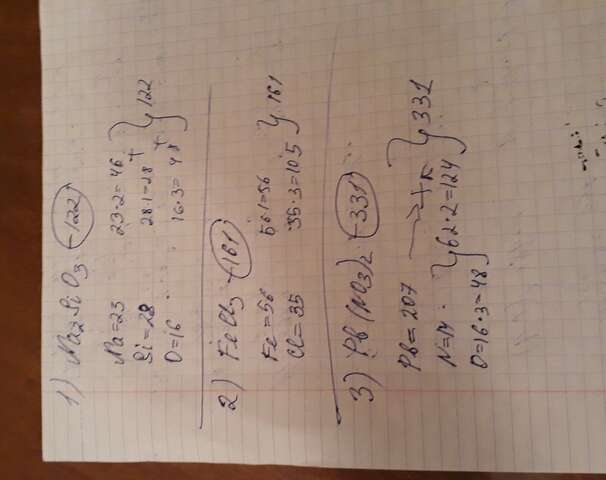 1) Na2SiO3 - 122
Na=23 23·2=46
Si=28 28·1=28 + } 122
O=16 16·3=48 +
2) FeCl3 - 161
Fe=56 56·1=56
Cl=35 35·3=105 } 161
3) Pb(NO3)2 - 331
Pb=207 → +
N=14 } 62·2=124 } 331
O=16·3=48